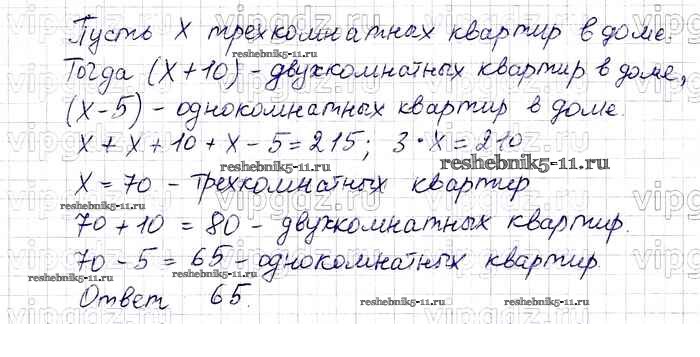 Пусть x трехкомнатных квартир в доме.
Тогда (x+10) - двухкомнатных квартир в доме,
(x-5) - однокомнатных квартир в доме.
x + x + 10 + x - 5 = 215; 3 * x = 210
x = 70 - трехкомнатных квартир
70 + 10 = 80 - двухкомнатных квартир.
70 - 5 = 65 - однокомнатных квартир.
Ответ 65.
reshebnik5-11.ru
reshebnik5-11.ru
reshebnik5-11.ru
reshebnik5-11.ru
reshebnik5-11.ru
reshebnik5-11.ru
reshebnik5-11.ru
reshebnik5-11.ru
vipgdz.ru